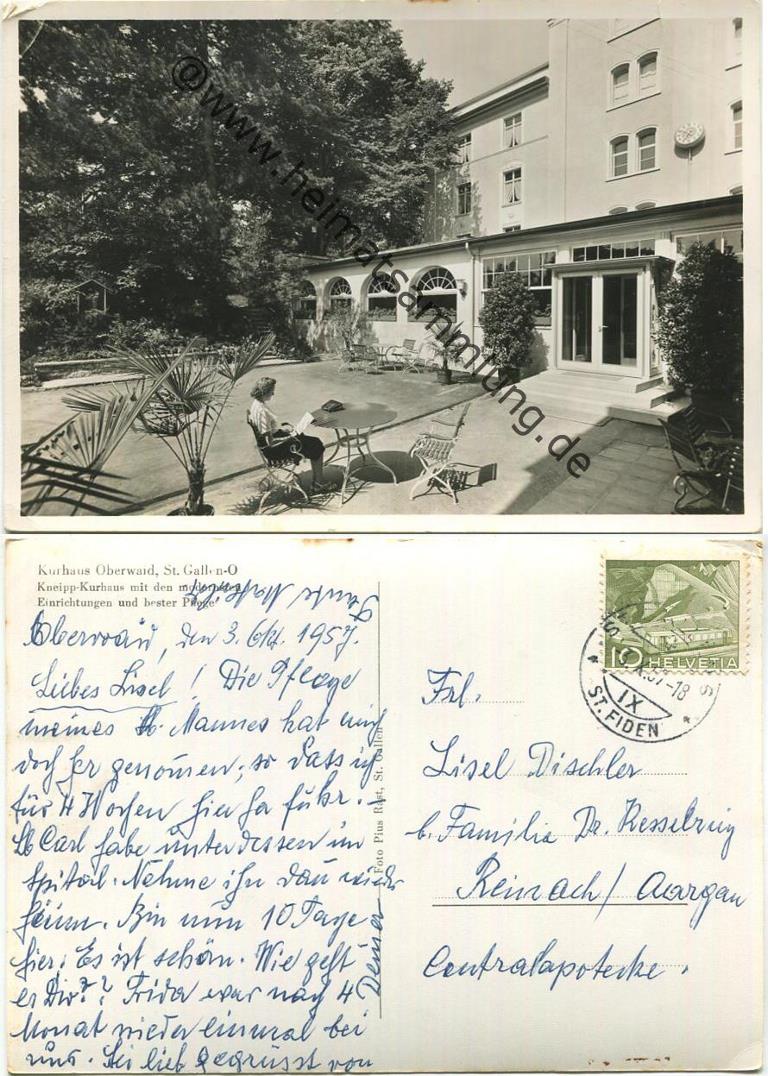 @www.heimatsammlung.de
Kurhaus Oberwaid, St. Gallen-O
Kneipp-Kurhaus mit den modernsten
Einrichtungen und bester Pflege
Oberwaid, den 3. Okt. 1957.
Liebes Lisel! Die Pflege
meines lb. Mannes hat mich
doch her genomen, so dass ich
für 4 Wochen hierher fuhr. –
lb Carl habe unterdessen im
Spital. Nehme ihn dan wieder
heim. Bin nun 10 Tage
hier. Es ist schön. Wie geht
es Dir?? Frida war nach 4
Monat wieder einmal bei
uns. Sei lieb gegrüsst von
Deiner
Foto Pius Rast, St. Gallen
10 HELVETIA
IX
ST. FIDEN
Frl.
Lisel Dischler
b. Familie Dr. Kesselring
Reinach / Aargau
Centralapoteke.